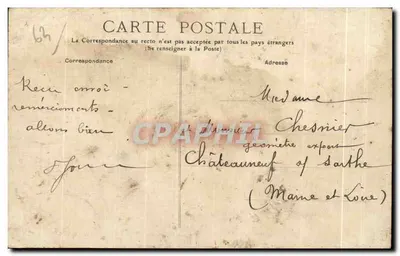 CARTE POSTALE
La Correspondance au recto n'est pas acceptée par tous les pays étrangers
(Se renseigner à la Poste)
Correspondance
Adresse
Reçu envoi -
remerciements -
allons bien
Madame
et Monsieur Chesnier
géomètre expert
Châteauneuf s/ Sarthe
(Maine et Loire)
CPARAMA